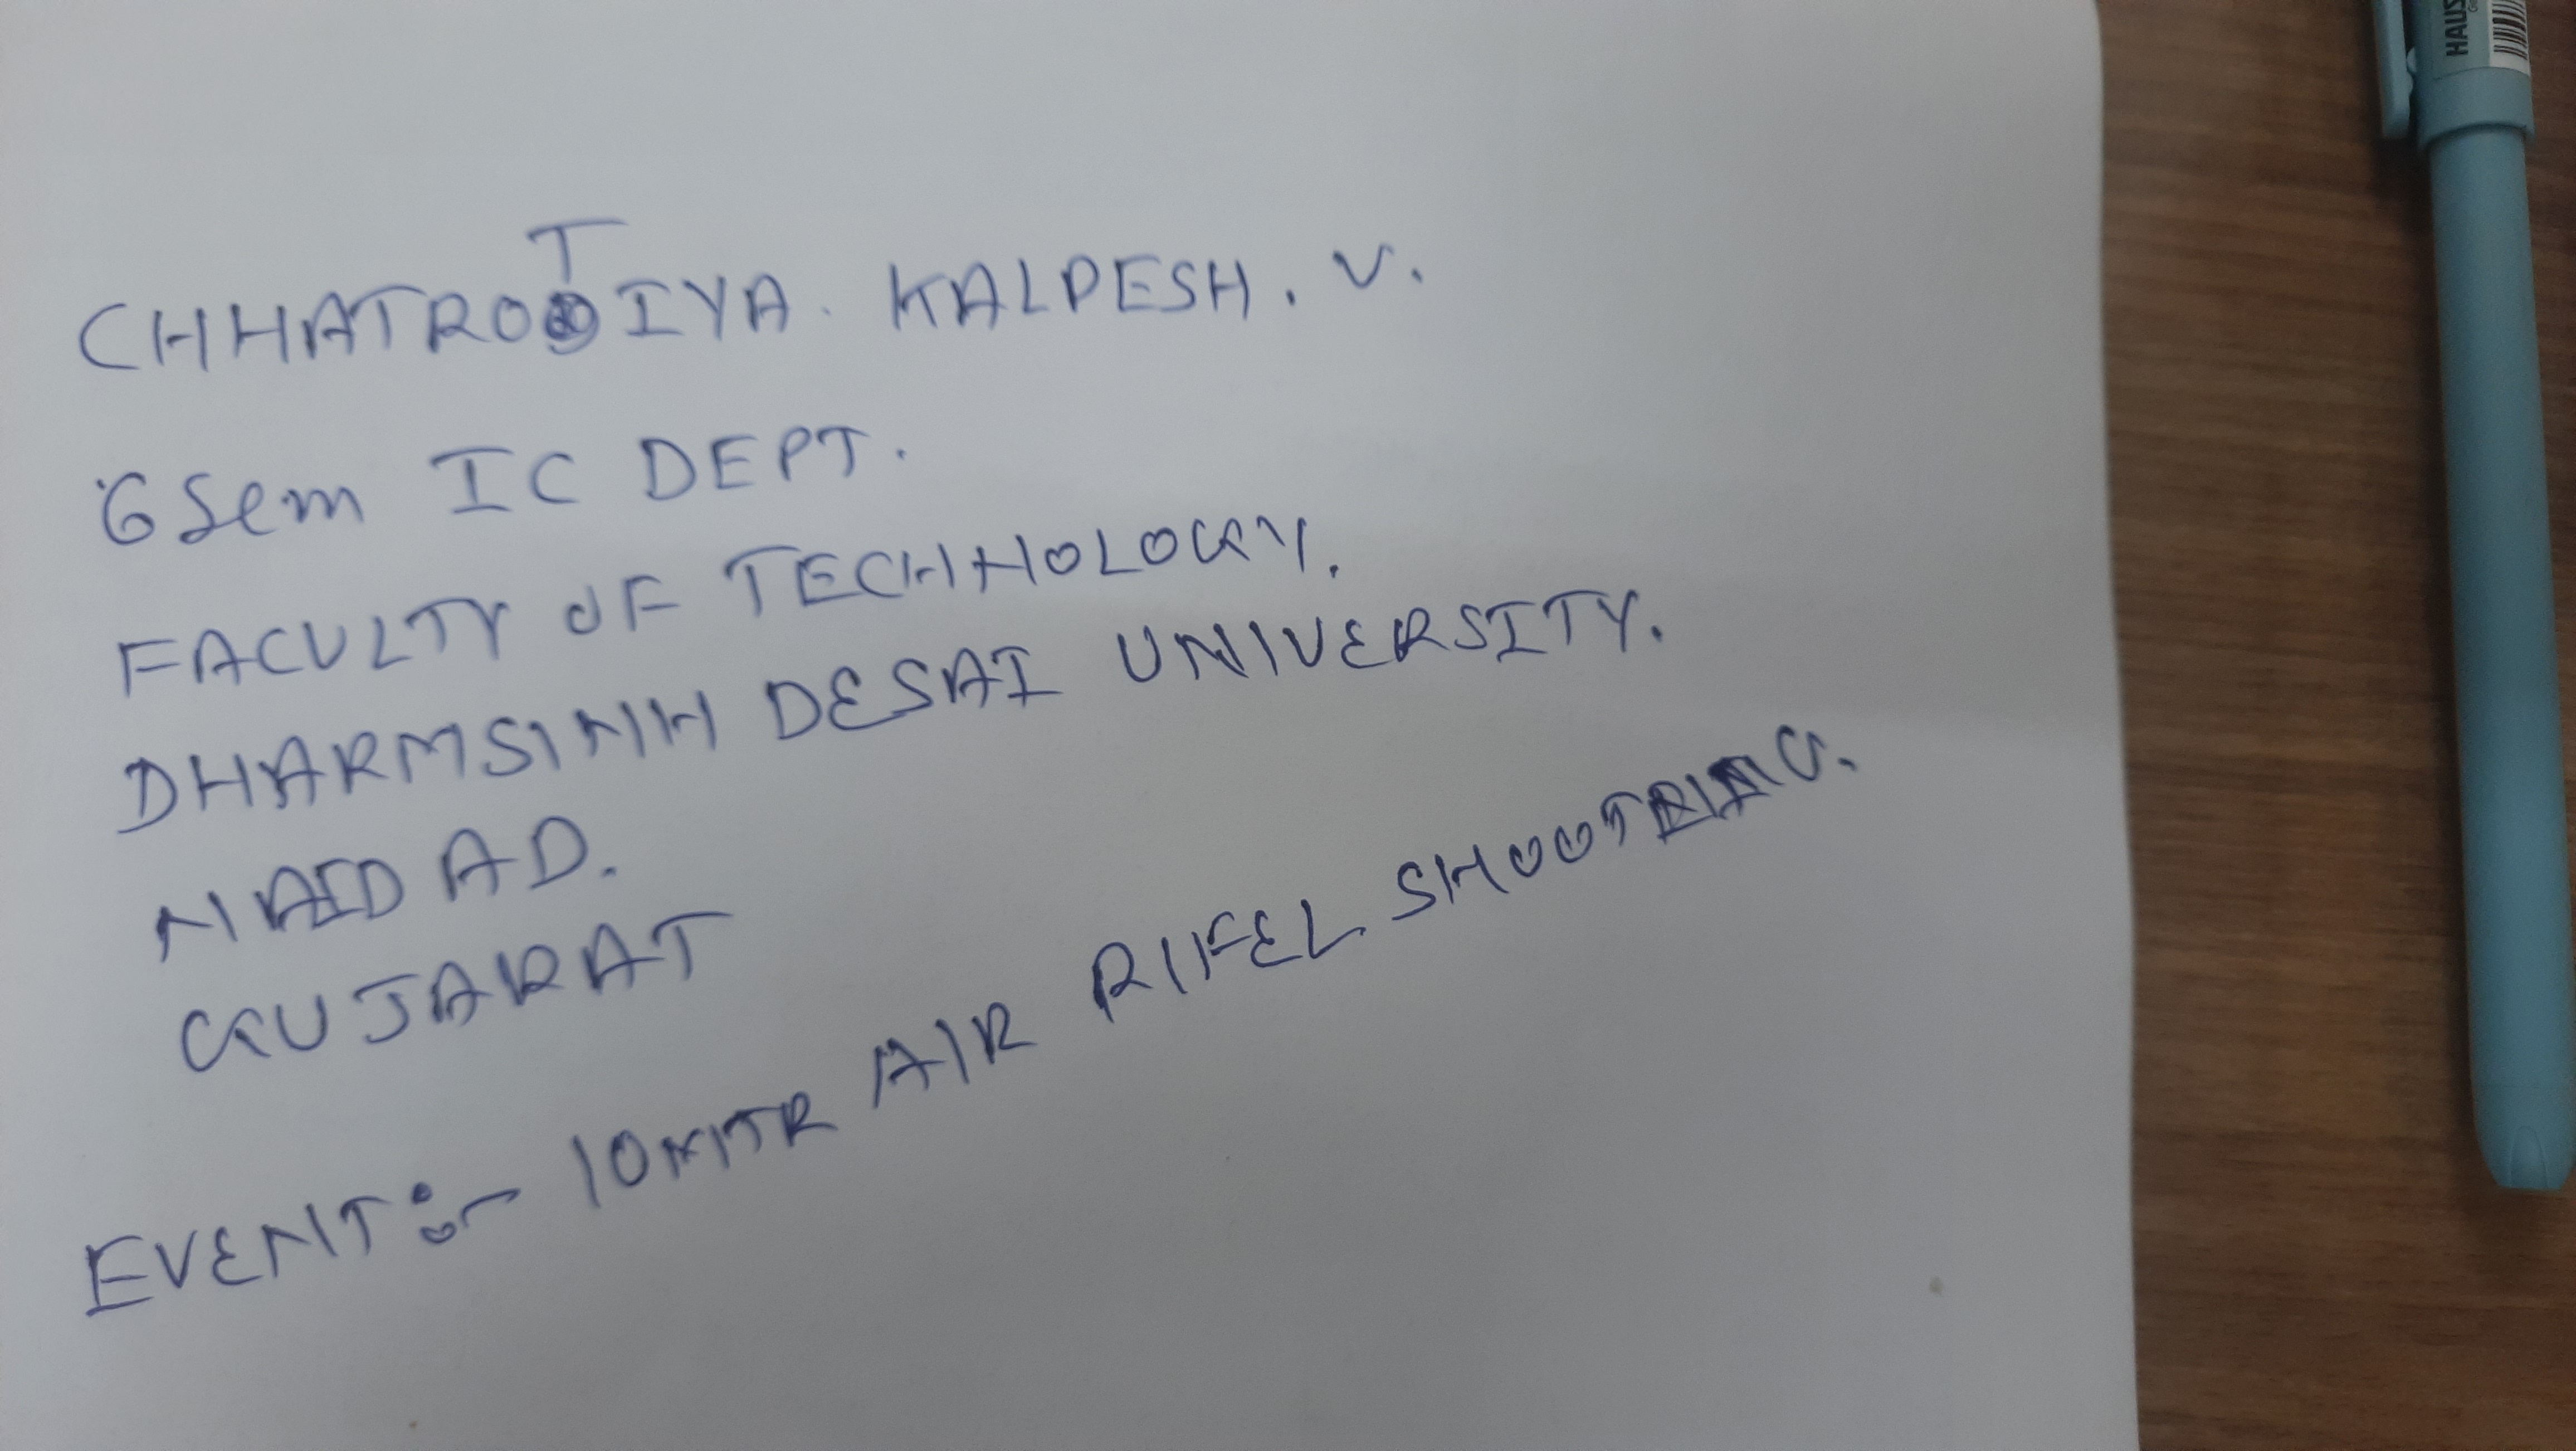 CHHATROTIYA. KALPESH. V.
6 Sem IC DEPT.
FACULTY OF TECHNOLOGY.
DHARMSINH DESAI UNIVERSITY.
NAIDAD.
GUJARAT
EVENT:- 10MTR AIR RIFEL SHOOTING.
HAUS